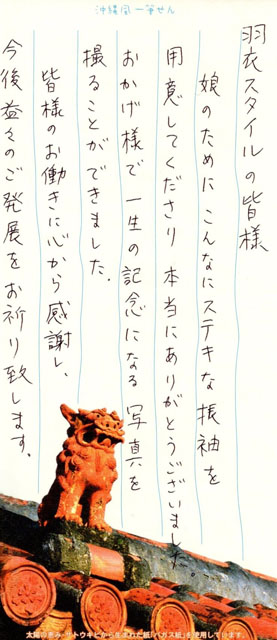 沖縄風一筆せん
羽衣スタイルの皆様
娘のために こんなにステキな振袖を
用意してくださり 本当にありがとうございました。
おかげ様で 一生の記念になる 写真を
撮ることができました。
皆様のお働きに心から感謝し、
今後益々のご発展をお祈り致します。
太陽の恵み・サトウキビから生まれた紙「バガス紙」を使用しています。